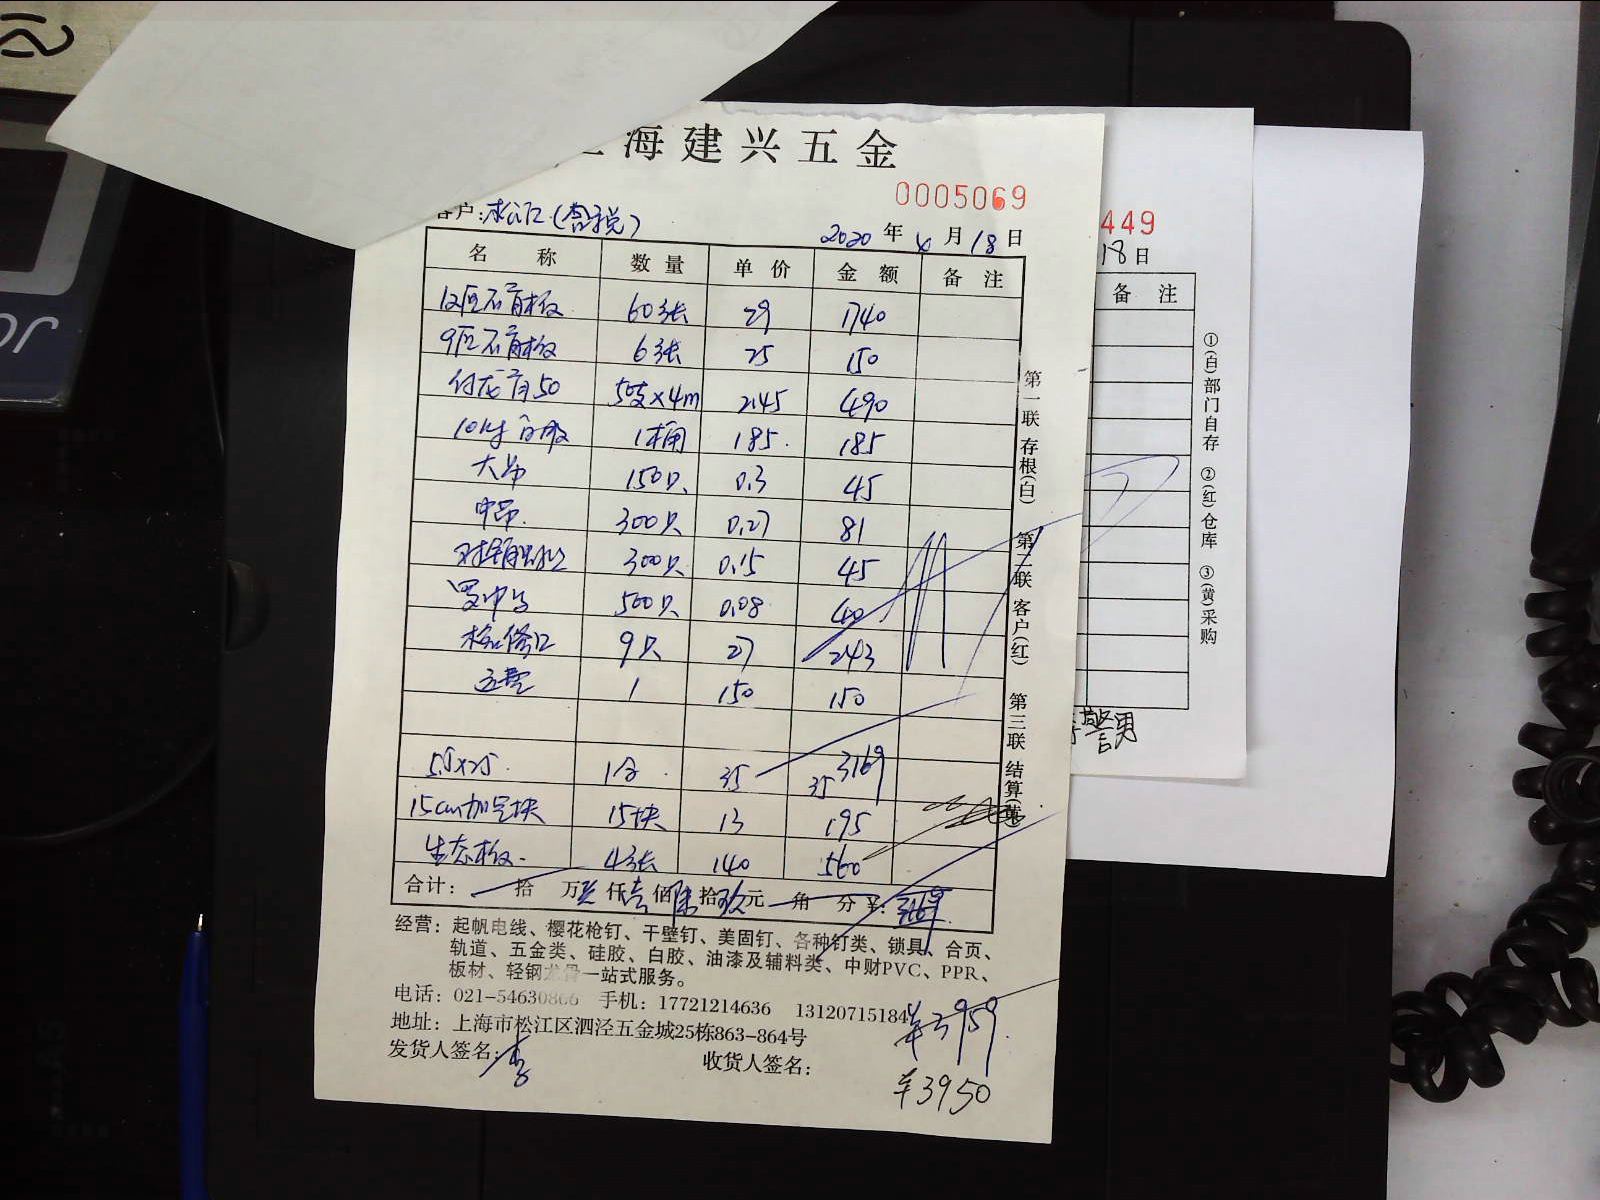 上海建兴五金
0005069
客户: 松江(含税)
2020 年 4 月 18 日
名 称 数 量 单 价 金 额 备 注
12厘石膏板 60张 29 1740
9厘石膏板 6张 25 150
付龙骨50 50支×4m 2.45 490
10kg白胶 1桶 185. 185
大吊 150只 0.3 45
中吊. 300只 0.27 81
300只 0.15 45
500只 0.08 40
检修口 9只 27 243
运费 1 150 150
3169
5.5×25. 1合. 35 35
15cm加气块 15块 13 195
生态板. 4张 140 560
合计: 拾 万 叁 仟 壹 佰 陆 拾 玖 元 角 分 ¥: 3169.
经营: 起帆电线、樱花枪钉、干壁钉、美固钉、各种钉类、锁具、合页、
轨道、五金类、硅胶、白胶、油漆及辅料类、中财PVC、PPR、
板材、轻钢龙骨一站式服务。
电话: 021-54630866 手机: 17721214636 13120715184
地址: 上海市松江区泗泾五金城25栋863-864号
发货人签名: 李 收货人签名:
¥3959.
¥3950
第一联 存根(白) 第二联 客户(红) 第三联 结算(黄)
449
18日
备 注
①(白)部门自存 ②(红)仓库 ③(黄)采购
李警男